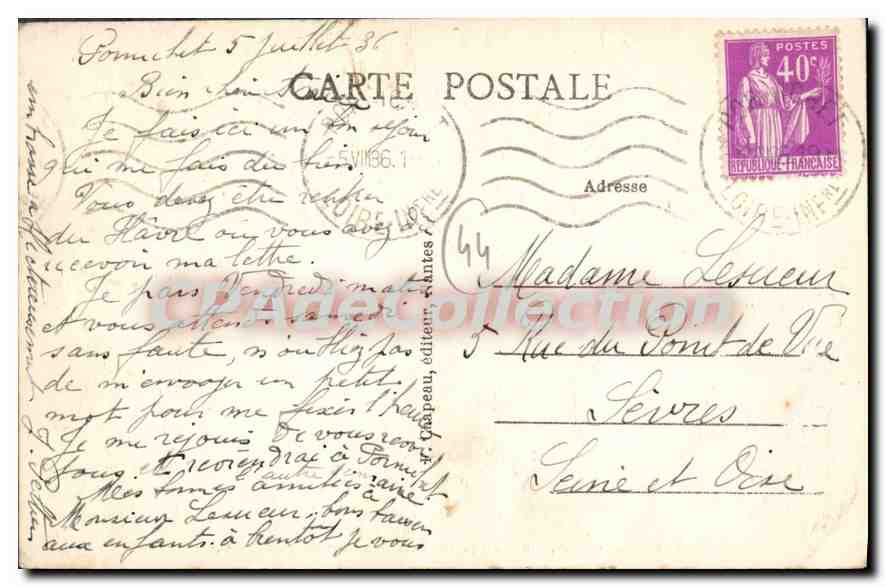 Pornichet 5 juillet 36
Bien
Je fais ici un bon séjour
qui me fais du bien.
Vous devez être rentrer
du Hâvre où vous avez
recevoir ma lettre.
Je pars Vendredi matin
et vous attends samedi
sans faute, n'oubliez pas
de m'envoyer un petit
mot pour me fixer l'heure
Je me réjouis de vous revoir
tous et reviendrai à Pornichet
l'autre
Mes bonnes amitiés à
Monsieur Lesueur, bons baisers
aux enfants. à bientôt je vous
embrasse affectueusement
CARTE POSTALE
Adresse
F. Chapeau, éditeur, Nantes
44
Madame Lesueur
5 Rue du Point de Vue
Sèvres
Seine et Oise
POSTES
40c
REPUBLIQUE-FRANÇAISE
5 VII 36
LOIRE-INFRE
LOIRE-INFRE
CPAdeCollection